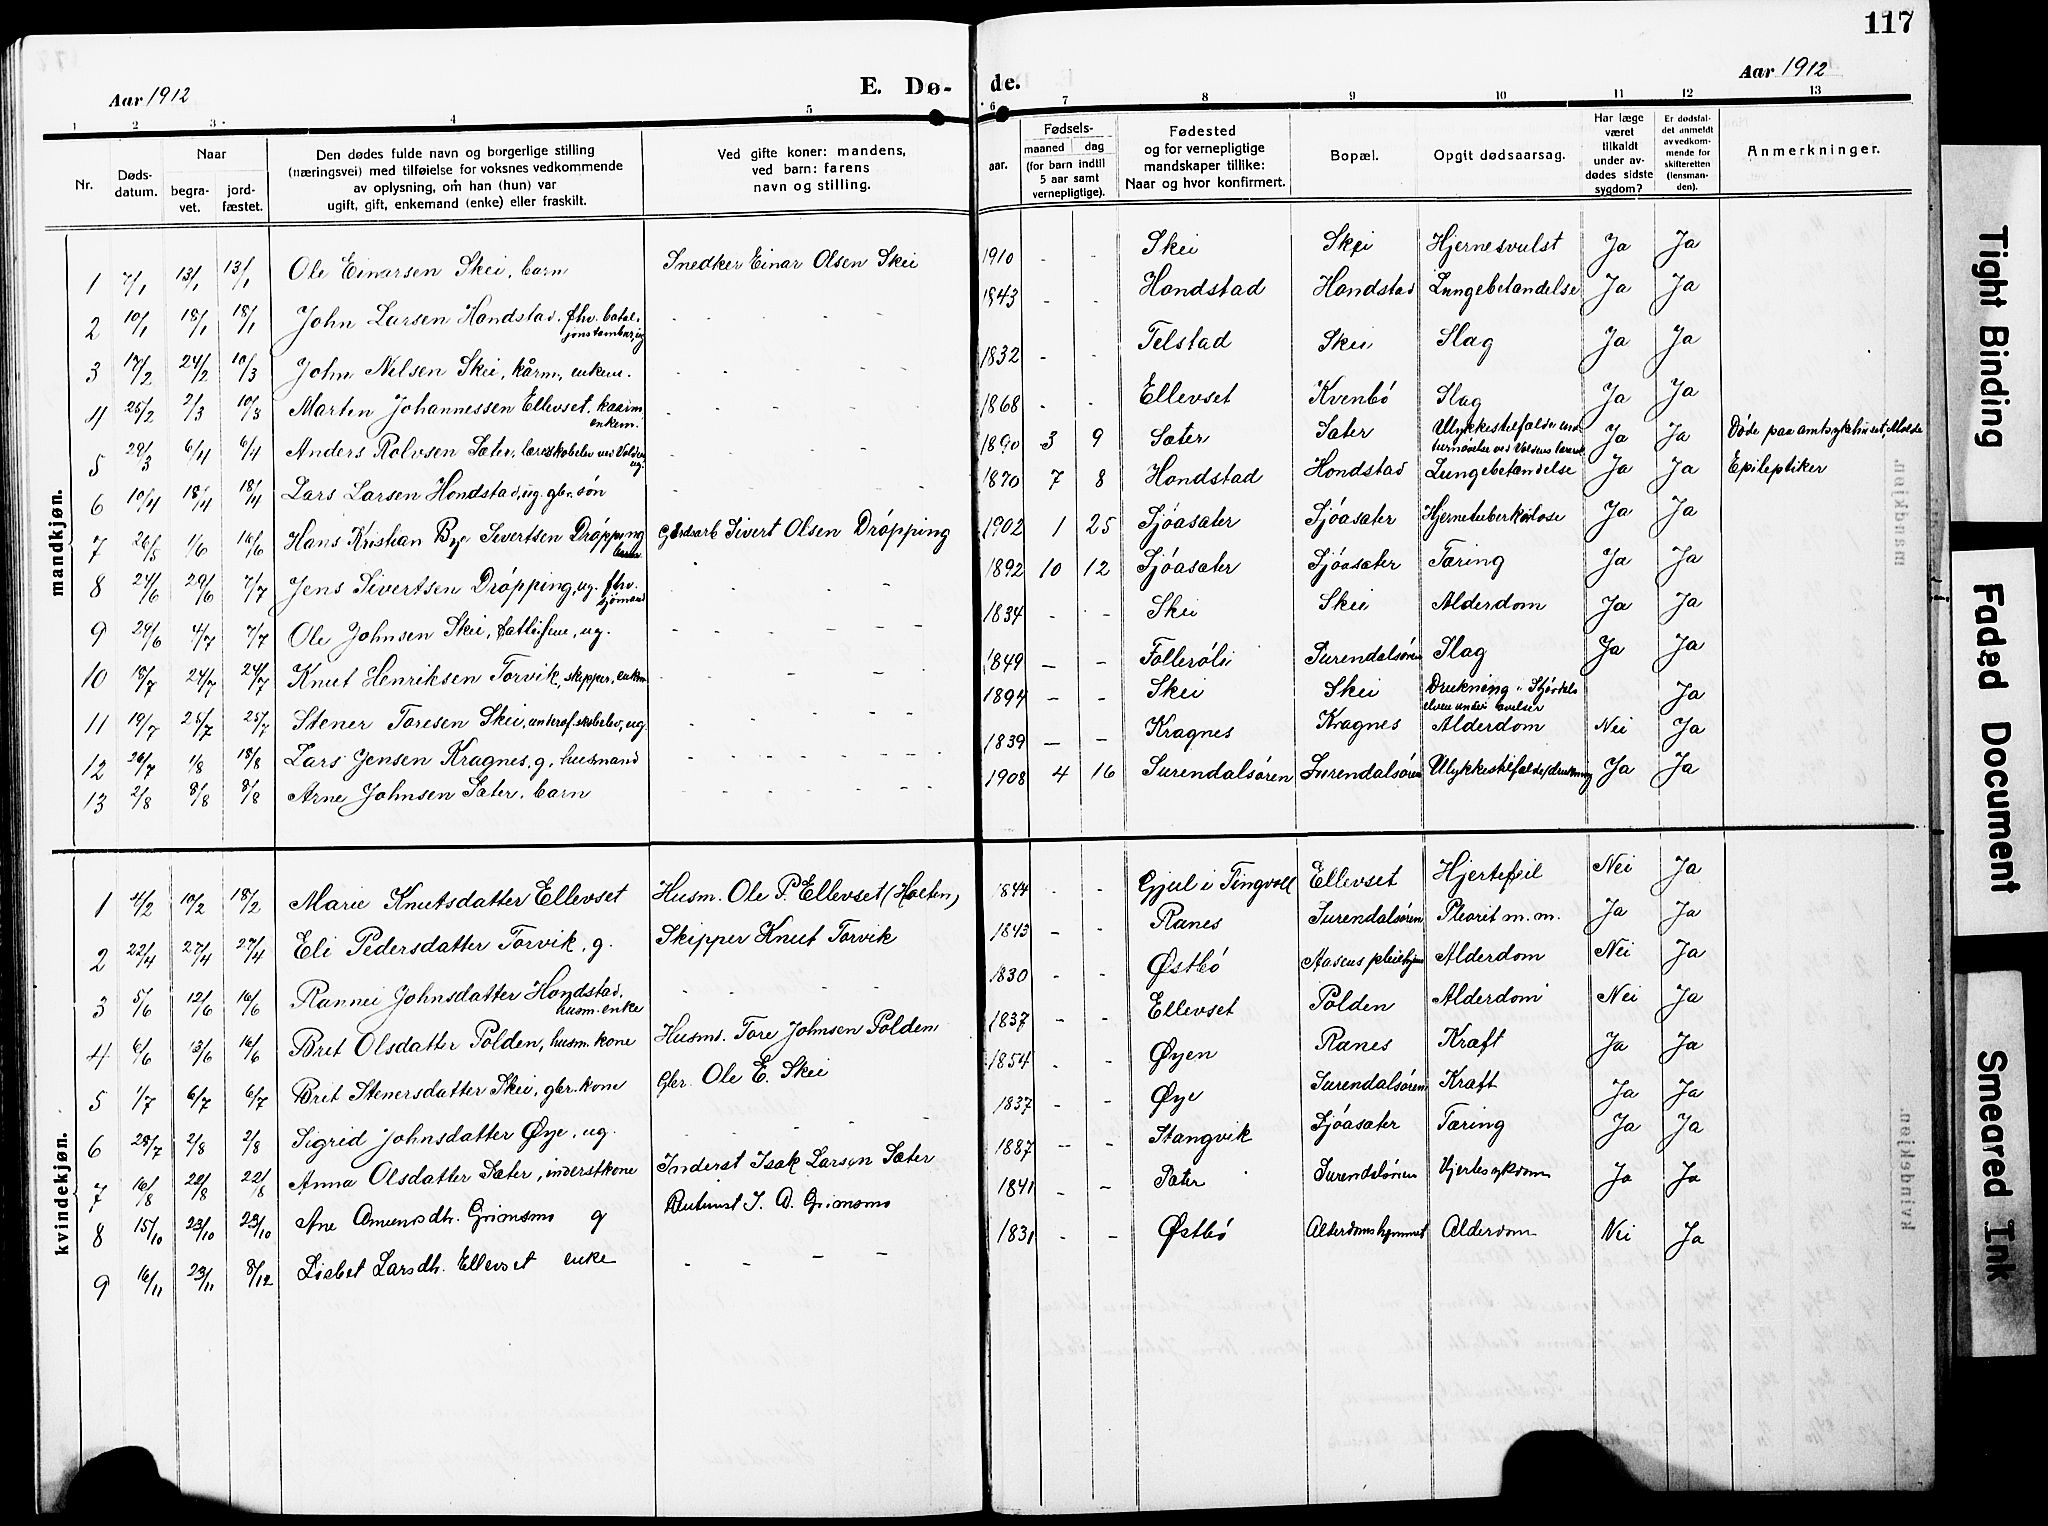 117
Aar 1912
E. Dø-
de.
Aar 1912
1 2 3 4 5 6 7 8 9 10 11 12 13
Nr.
Døds-
datum.
Naar
begra-
vet.
jord-
fæstet.
Den dødes fulde navn og borgerlige stilling
(næringsvei) med tilføielse for voksnes vedkommende
av oplysning, om han (hun) var
ugift, gift, enkemand (enke) eller fraskilt.
Ved gifte koner: mandens,
ved barn: farens
navn og stilling.
Fødsels-
aar.
maaned dag
(for barn indtil
5 aar samt
vernepligtige).
Fødested
og for vernepligtige
mandskaper tillike:
Naar og hvor konfirmert.
Bopæl.
Opgit dødsaarsag.
Har læge
været
tilkaldt
under av-
dødes sidste
sygdom?
Er dødsfal-
det anmeldt
av vedkom-
mende for
skifteretten
(lensman-
den).
Anmerkninger.
mandkjøn.
1 7/1 13/1 13/1 Ole Einarsen Skei, barn Snedker Einar Olsen Skei 1910 - - Skei Skei Hjernesvulst Ja Ja
2 10/1 18/1 18/1 John Larsen Hondstad, fhv. batal-
jonstambur, ug - - - - 1843 - - Hondstad Hondstad Lungebetændelse Ja Ja
3 17/2 24/2 10/3 John Nilsen Skei, kårm., enkem. - - - - 1832 - - Telstad Skei Slag Ja Ja
4 25/2 2/3 10/3 Marten Johannessen Ellevset, kaarm.
enkem. - - - - 1868 - - Ellevset Kvenbö Slag Ja Ja
5 29/3 6/4 6/4 Anders Rolvsen Sæter, lærerskoleelev ved Volden
ug. - - - - 1890 3 9 Sæter Sæter Ulykkestilfælde
ved Ja Ja Døde paa amtssykehuset, Molde
6 10/4 18/4 18/4 Lars Larsen Hondstad, ug. gbr. søn - - - - 1870 7 8 Hondstad Hondstad Lungebetændelse Ja Ja Epileptiker
7 26/5 1/6 16/6 Hans Kristian By Sivertsen Dröpping
barn Gaardsarb Sivert Olsen Dröpping 1902 1 25 Sjöasæter Sjöasæter Hjernetuberkulose Ja Ja
8 24/6 29/6 7/7 Jens Sivertsen Dröpping, ug. fhv.
sjømand - - - 1892 10 12 Sjöasæter Sjöasæter Tæring Ja Ja
9 29/6 4/7 7/7 Ole Johnsen Skei, fattiglem, ug. - - - - 1834 - - Skei Skei Alderdom Ja Ja
10 18/7 24/7 24/7 Knut Henriksen Torvik, skipper, enkem - - - - 1849 - - Folleröli Surendalsören Slag Ja Ja
11 19/7 25/7 25/7 Stener Toresen Skei, underof. skoleelev, ug. - - - - 1894 - - Skei Skei Drukning i Stjørdals
elven under øvelser Ja
12 26/7 1/8 18/8 Lars Jensen Kragnes, g, husmand - - - - 1839 - - Kragnes Kragnes Alderdom Nei Ja
13 2/8 8/8 8/8 Arne Johnsen Sæter, barn - - - - 1908 4 16 Surendalsören Surendalsören Ulykkestilfælde, drukning Ja Ja
kvindekjøn.
1 4/2 10/2 18/2 Marie Knutsdatter Ellevset Husm. Ole P. Ellevset (Holten) 1844 - - Gjul i Tingvoll Ellevset Hjertefeil Nei Ja
2 22/4 27/4 27/4 Eli Pedersdatter Torvik, g. Skipper Knut Torvik 1843 - - Ranes Surendalsören Pleorit m.m. Ja Ja
3 5/6 12/6 16/6 Rannei Johnsdatter Hondstad,
husm. enke - - - - 1830 - - Østbö Aasens pleiehjem Alderdom Nei Ja
4 6/6 13/6 16/6 Brit Olsdatter Polden, husm. kone Husm. Tore Johnsen Polden 1837 - - Ellevset Polden Alderdom Nei Ja
5 1/7 6/7 6/7 Brit Stenersdatter Skei, gbr. kone Gbr. Ole E. Skei 1854 - - Øyen Ranes Kræft Ja Ja
6 28/7 2/8 2/8 Sigrid Johnsdatter Øye, ug. - - - - 1837 - - Øye Surendalsören Kræft Ja Ja
7 16/8 22/8 22/8 Anna Olsdatter Sæter, inderstkone Inderst Isak Larsen Sæter 1887 - - Stangvik Sjöasæter Tæring Ja Ja
8 15/10 23/10 23/10 Ane Amundsdh. Grimsmo g I. A. Grimsmo 1841 - - Sæter Surendalsören Hjertesykdom Ja Ja
9 16/11 23/11 8/12 Lisbet Larsdh. Ellevset enke - - - - 1831 - - Østbö Alderdomshjemmet Alderdom Nei Ja
Tight Binding
Faded Document
Smeared Ink